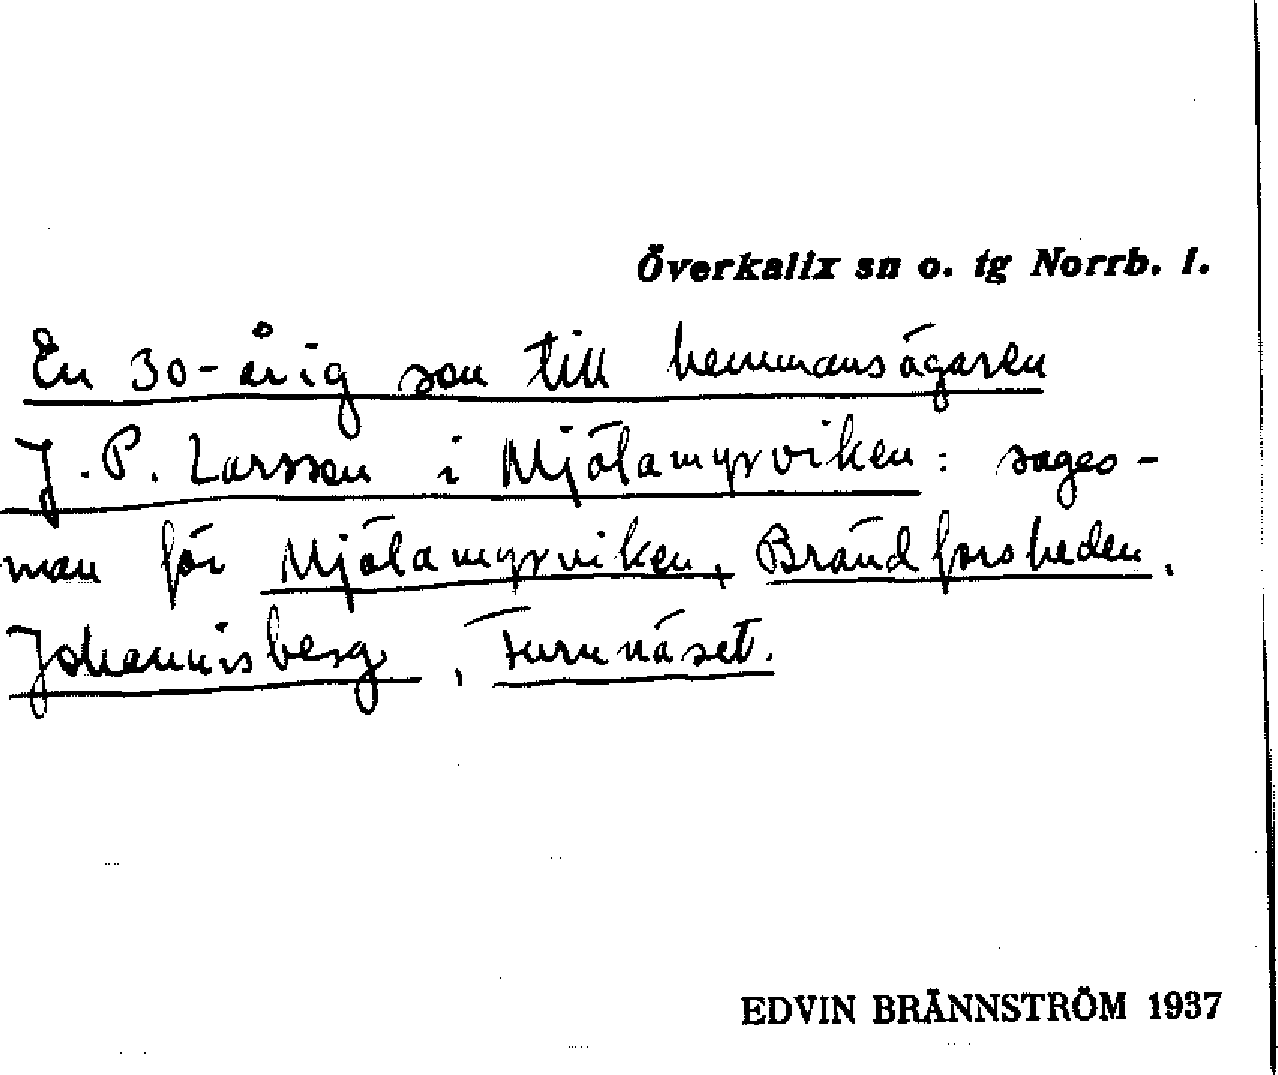 Överkalix sn o. tg Norrb. l.
En 30-årig son till hemmansägaren
J. P. Larsson i Mjölamyrviken: sages-
man för Mjölamyrviken, Brändforsheden,
Johannisberg, Furunäset.
EDVIN BRÄNNSTRÖM 1937